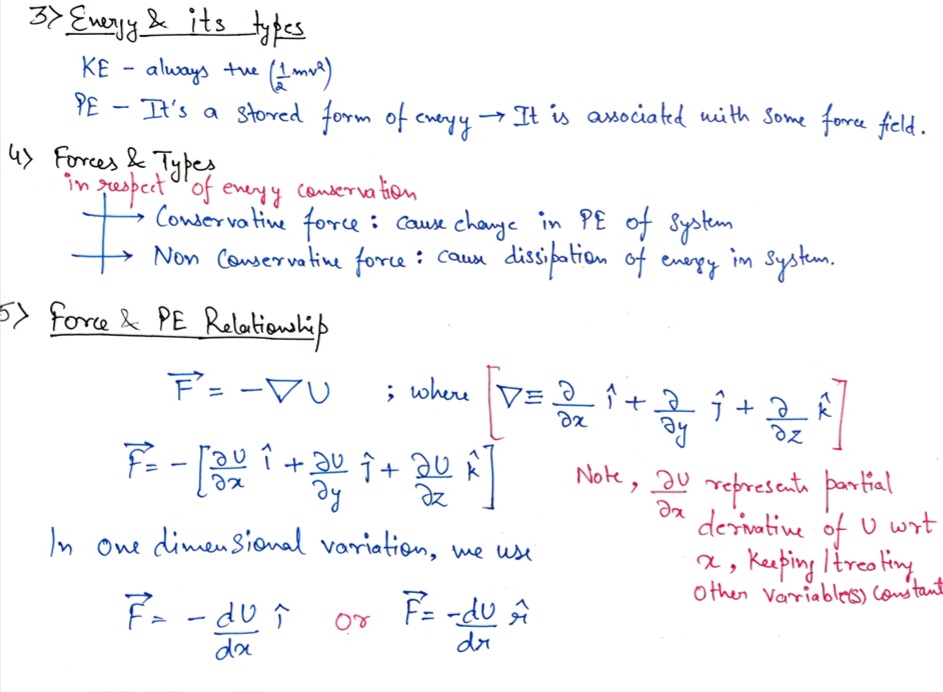 3> Energy & its types
KE – always +ve (1/2 mv²)
PE – It's a stored form of energy → It is associated with some force field.
4> Forces & Types
in respect of energy conservation
→ Conservative force : cause change in PE of System
→ Non Conservative force : cause dissipation of energy in System.
5> Force & PE Relationship
F⃗ = −∇U ; where [∇ ≡ ∂/∂x î + ∂/∂y ĵ + ∂/∂z k̂]
F⃗ = − [∂U/∂x î + ∂U/∂y ĵ + ∂U/∂z k̂]
Note, ∂U/∂x represents partial
derivative of U wrt
x, keeping/treating
other variable(s) constant
In one dimensional variation, we use
F⃗ = − dU/dx î or F⃗ = −dU/dr r̂